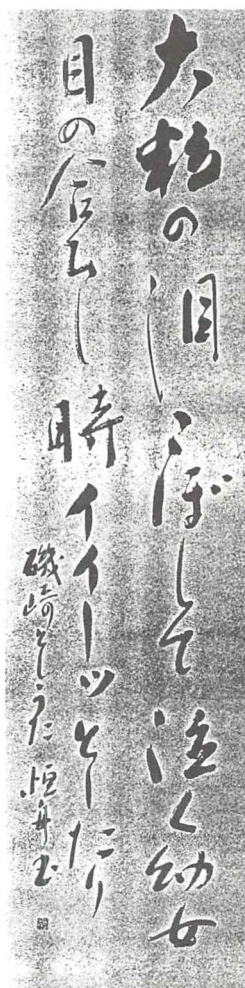 大粒の泪こぼして泣く幼女
目の合ひし時イイーッとしたり
磯崎としうた 恒舟書